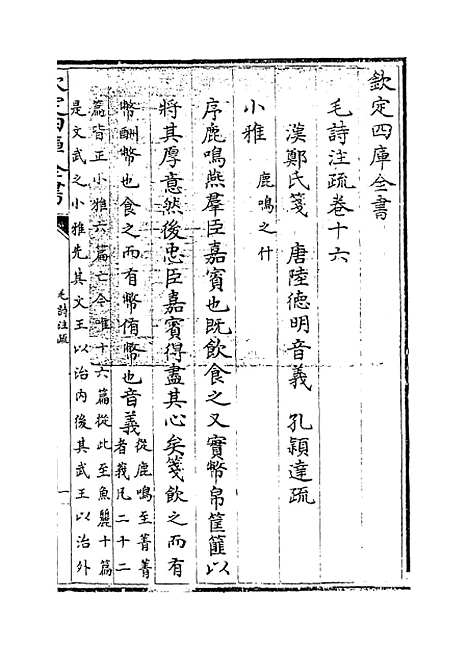 欽定四庫全書
毛詩注疏卷十六
漢鄭氏箋　唐陸德明音義　孔穎達疏
小雅　鹿鳴之什
序鹿鳴燕羣臣嘉賓也既飲食之又實幣帛筐篚以
將其厚意然後忠臣嘉賓得盡其心矣箋飲之而有
幣酬幣也食之而有幣侑幣也音義
從鹿鳴至菁菁
者莪凡二十二
篇皆正小雅六篇亡今唯十六篇從此至魚麗十篇
是文武之小雅先其文王以治內後其武王以治外
欽定四庫全書
毛詩注疏
一